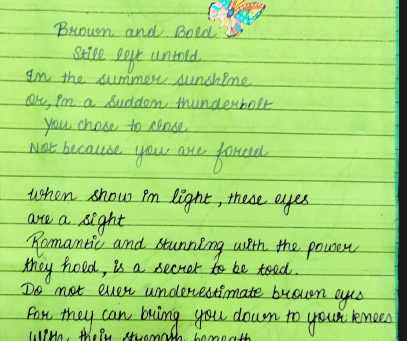 Brown and Bold
Still left untold
In the summer sunshine
Or, in a sudden thunderbolt
You chose to close
Not because you are forced
When show in light, these eyes
are a sight
Romantic and stunning with the power
they hold, is a secret to be toed.
Do not ever underestimate brown eyes
For they can bring you down to your knees
With their strength beneath